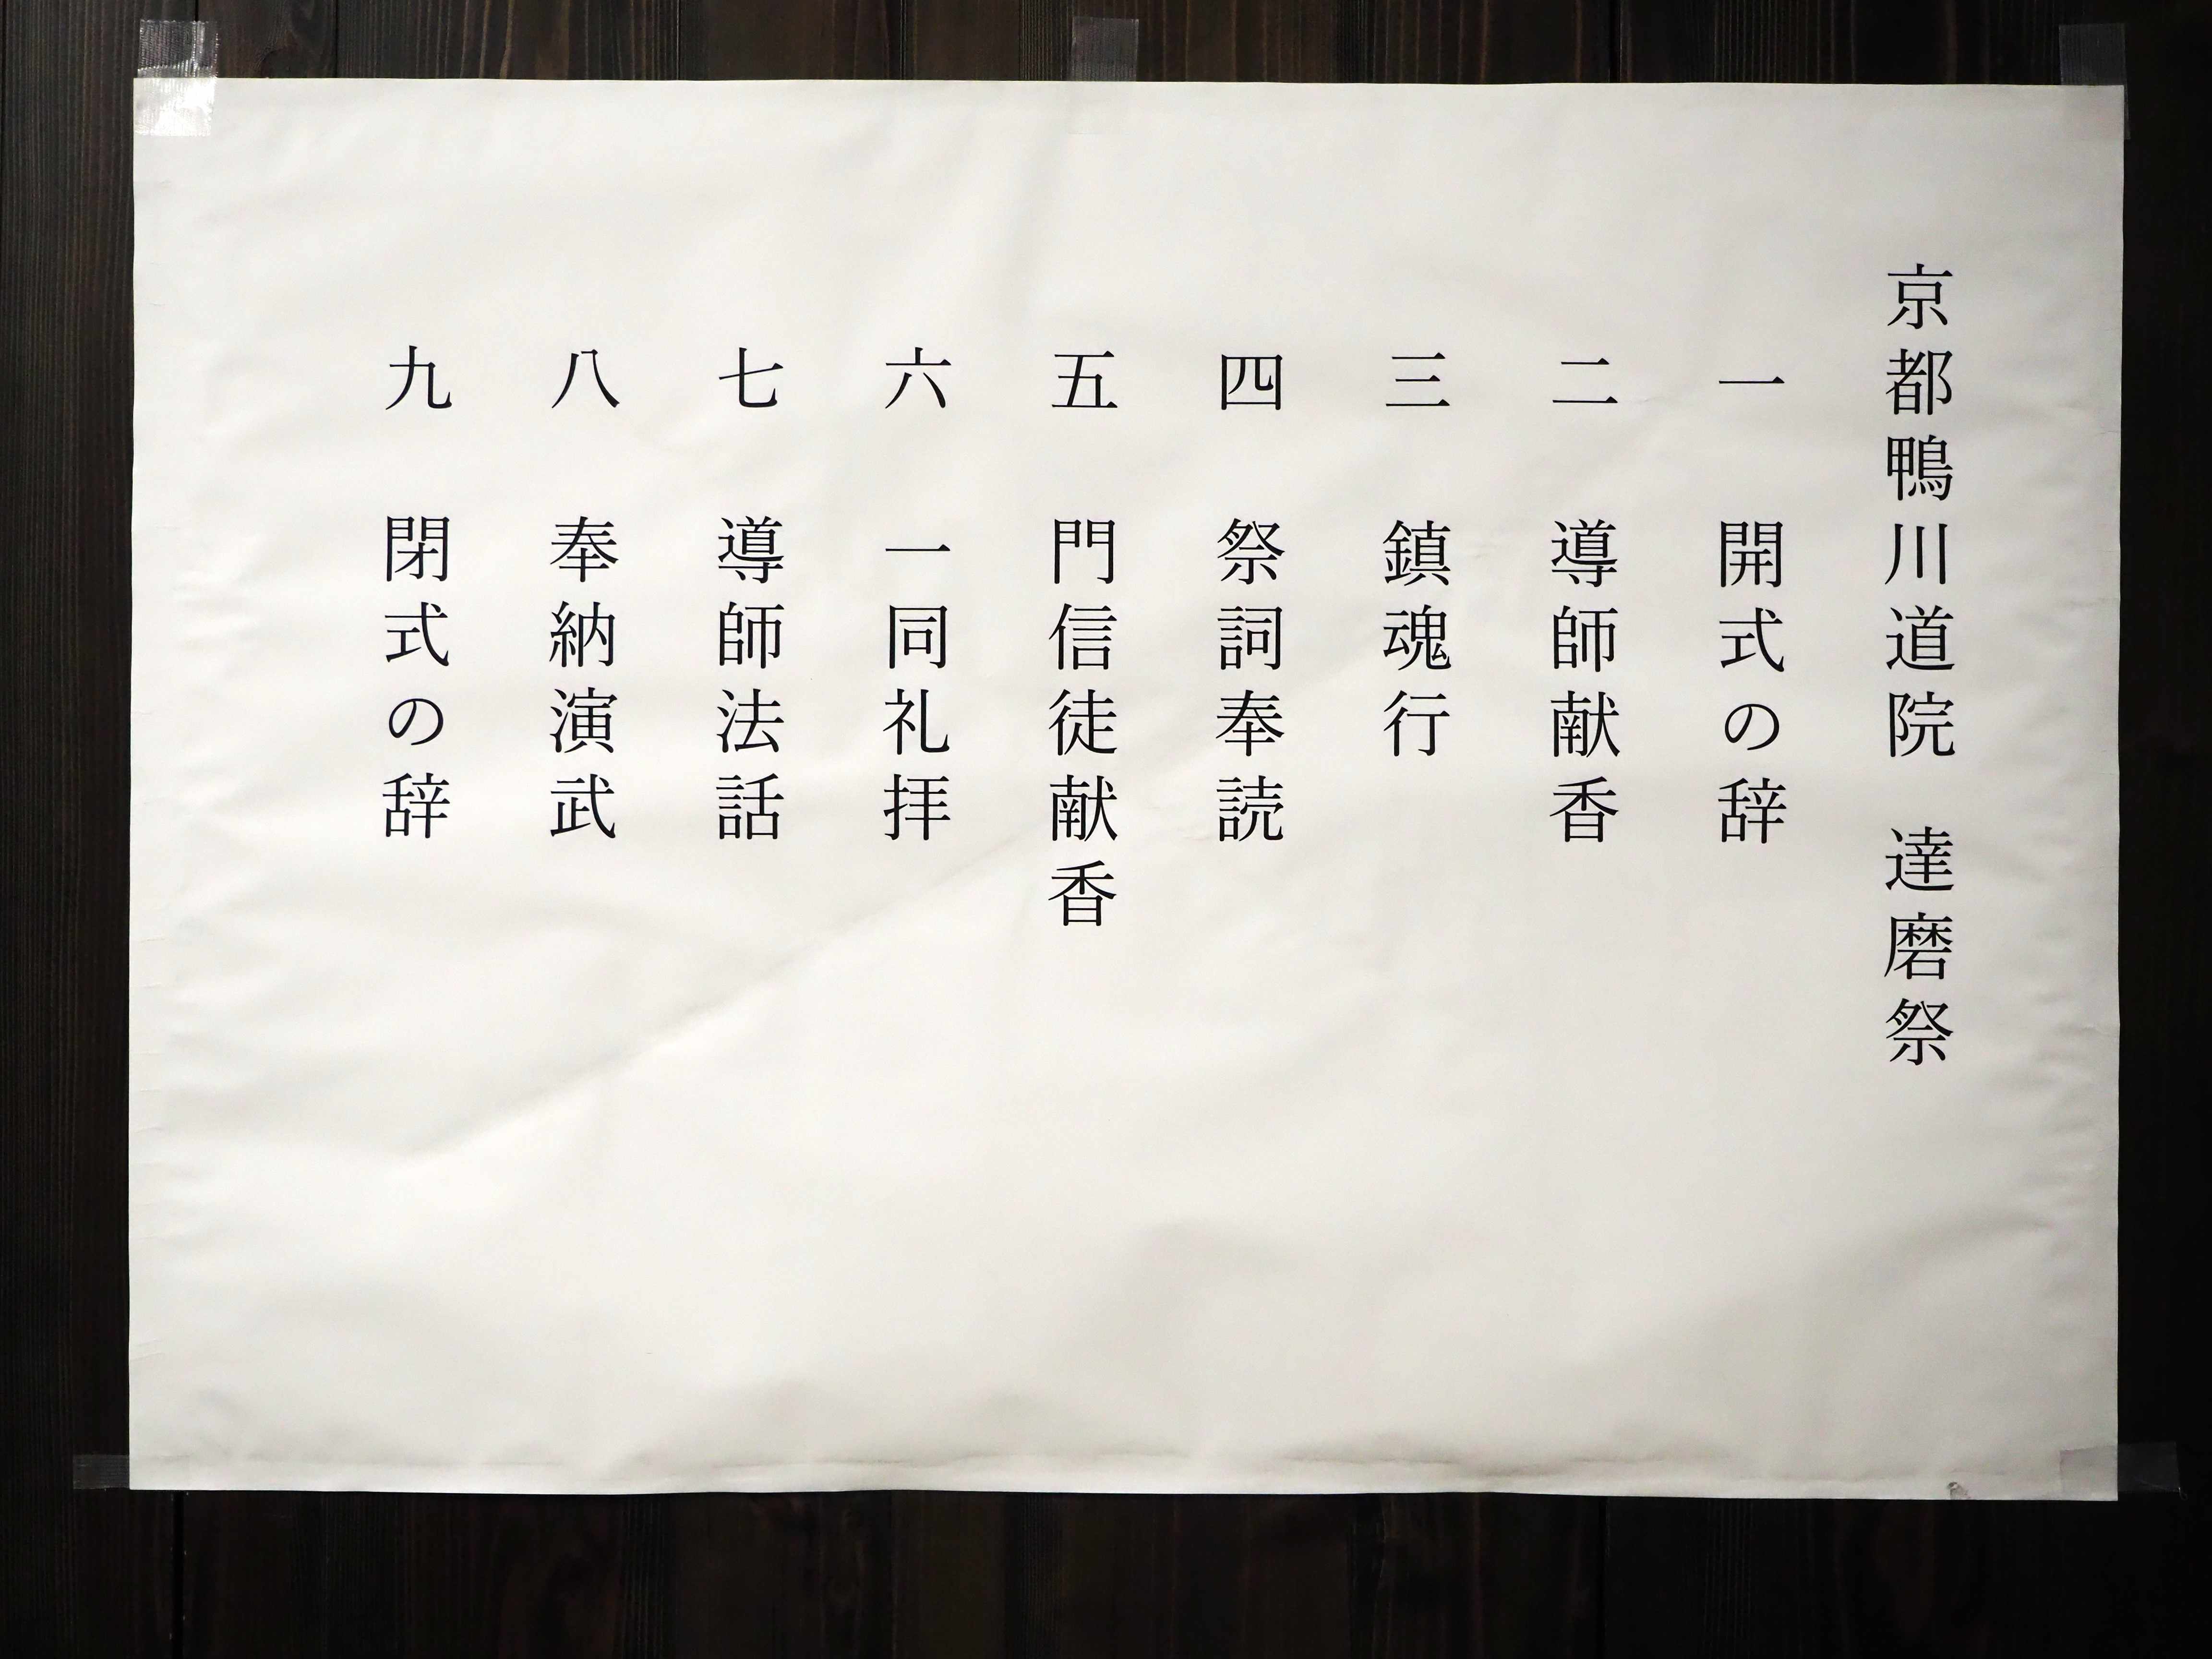 京都鴨川道院　達磨祭
一　開式の辞
二　導師献香
三　鎮魂行
四　祭詞奉読
五　門信徒献香
六　一同礼拝
七　導師法話
八　奉納演武
九　閉式の辞